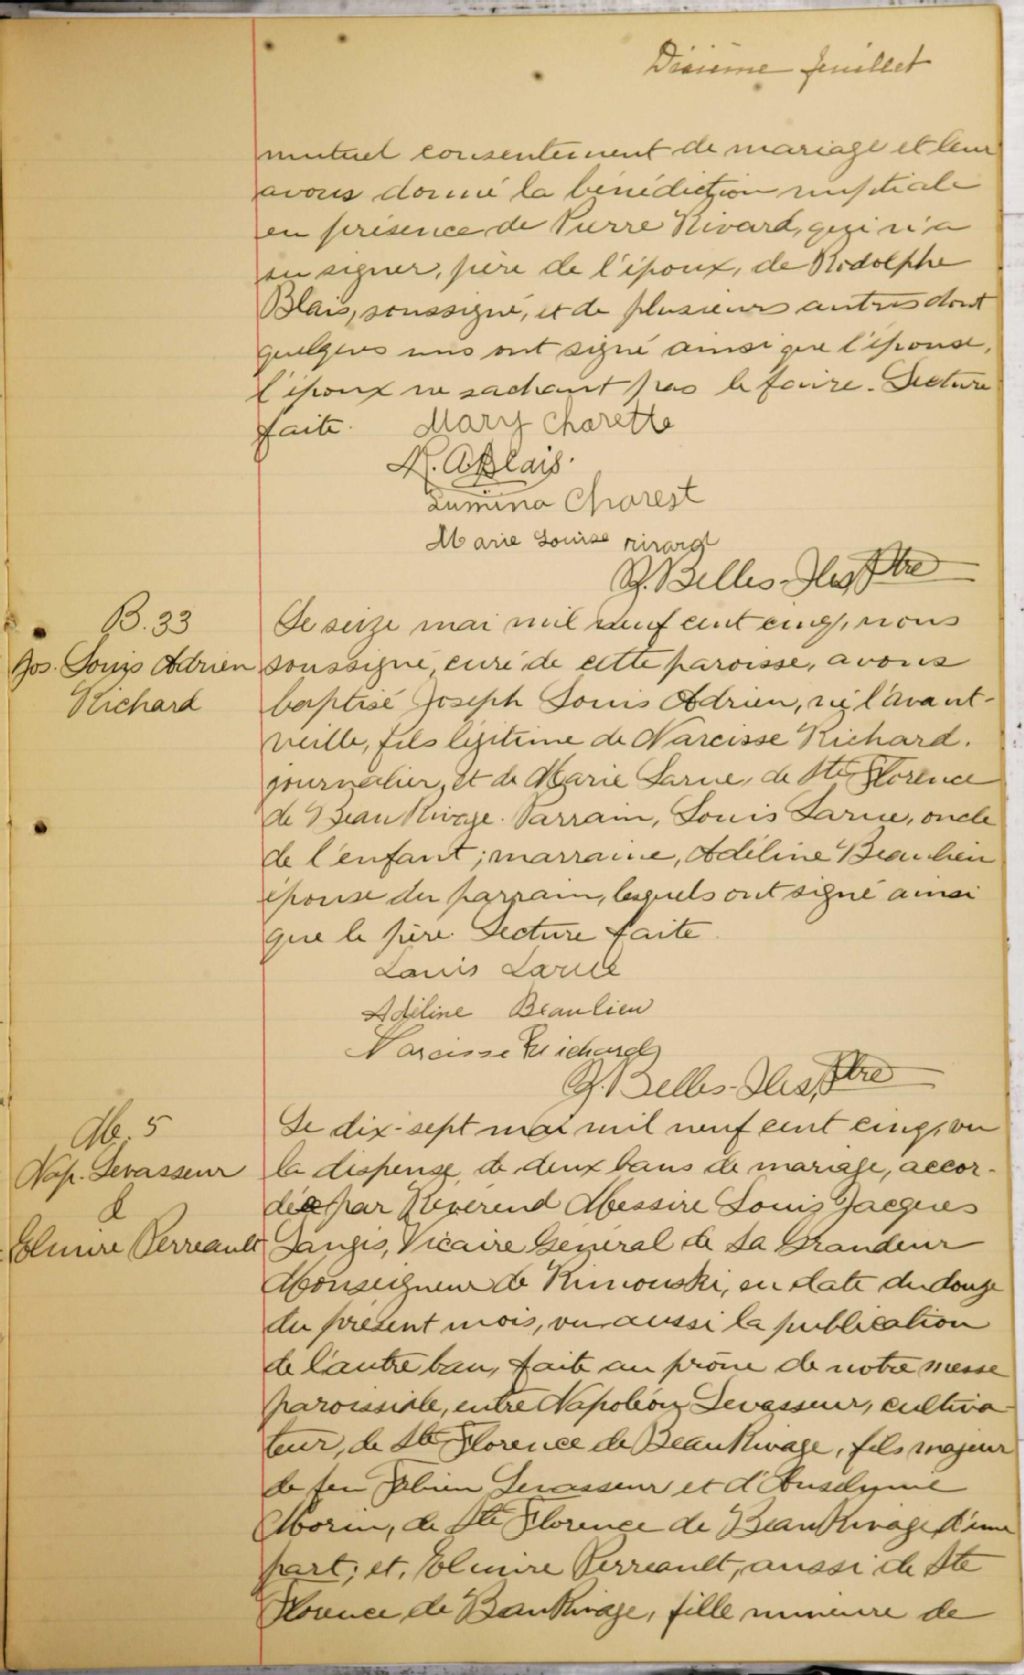 Dixième feuillet
mutuel consentement de mariage et leur
avons donné la bénédiction nuptiale
en présence de Pierre Rivard, qui n'a
su signer, père de l'époux, de Rodolphe
Blais, soussigné, et de plusieurs autres dont
quelques uns ont signé ainsi que l'épouse,
l'époux ne sachant pas le faire. Lecture
faite.
Mary Charette
R. A. Blais.
Lumina Charest
Marie Louise rivard
Belles-Iles, Ptre
B. 33
Jos. Louis Adrien
Richard
Le seize mai mil neuf cent cinq, nous
soussigné, curé de cette paroisse, avons
baptisé Joseph Louis Adrien, né l'avant-
veille, fils légitime de Narcisse Richard.
journalier, et de Marie Larue, de Ste Florence
de Beau Rivage. Parrain, Louis Larue, oncle
de l'enfant; marraine, Adéline Beaulieu
épouse du parrain, lesquels ont signé ainsi
que le père. Lecture faite
Louis Larue
Adéline Beaulieu
Narcisse Richard
Belles-Iles, Ptre
M. 5
Nap. Levasseur
&
Elmire Perreault
Le dix-sept mai mil neuf cent cinq, vu
la dispense de deux bans de mariage, accor-
dée par Révérend Messire Louis Jacques
Langis, Vicaire Général de Sa Grandeur
Monseigneur de Rimouski, en date du douze
du présent mois, vu aussi la publication
de l'autre ban, faite au prône de notre messe
paroissiale, entre Napoléon Levasseur, cultiva-
teur, de Ste Florence de Beau Rivage, fils majeur
de feu Fabien Levasseur et d'Anselmie
Morin, de Ste Florence de Beau Rivage d'une
part; et, Elmire Perreault, aussi de Ste
Florence de Beau Rivage, fille mineure de